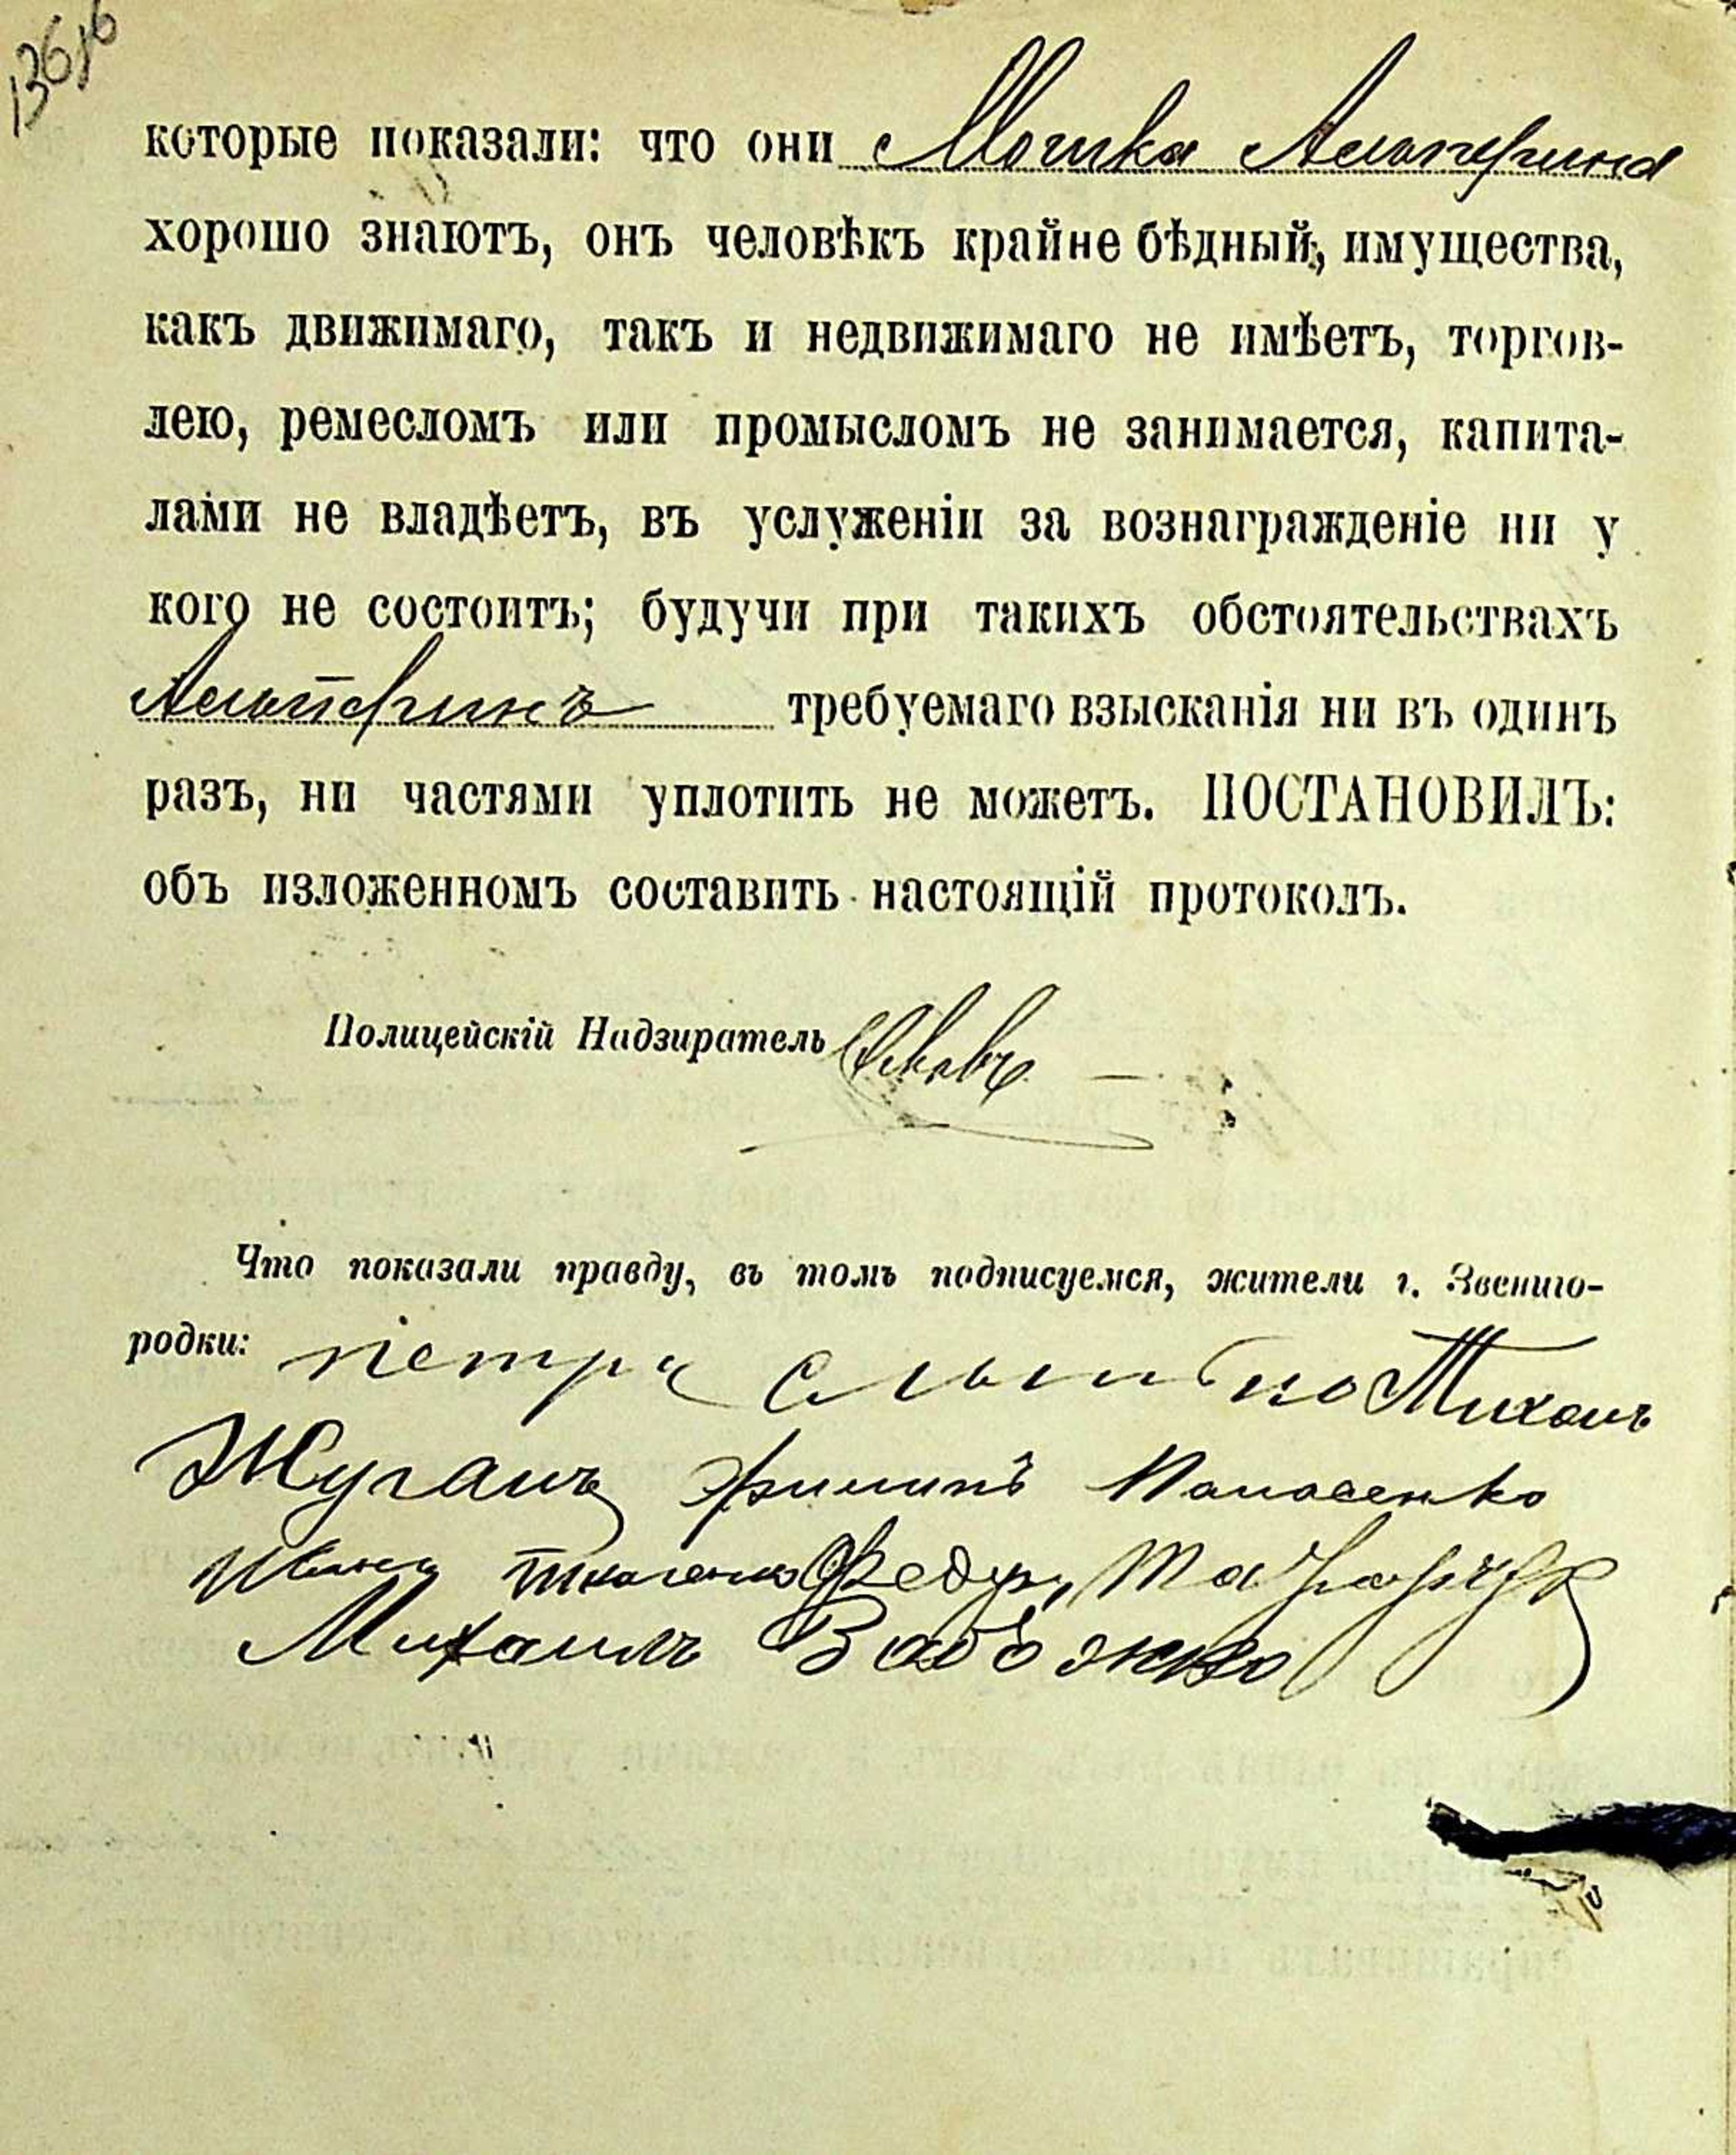 которые показали: что они Мошка Альперина
хорошо знаютъ, онъ человѣкъ крайне бѣдный, имущества,
какъ движимаго, такъ и недвижимаго не имѣетъ, торгов-
лею, ремесломъ или промысломъ не занимается, капита-
лами не владѣетъ, въ услуженіи за вознагражденіе ни у
кого не состоитъ; будучи при такихъ обстоятельствахъ
Альперинъ требуемаго взысканія ни въ одинъ
разъ, ни частями уплотить не можетъ. ПОСТАНОВИЛЪ:
объ изложенномъ составить настоящій протоколъ.
Полицейскій Надзиратель
Что показали правду, въ томъ подписуемся, жители г. Звениго-
родки: Тихонъ
Жуганъ Филипъ Панасенко
Ткаченко Федор
Михаилъ